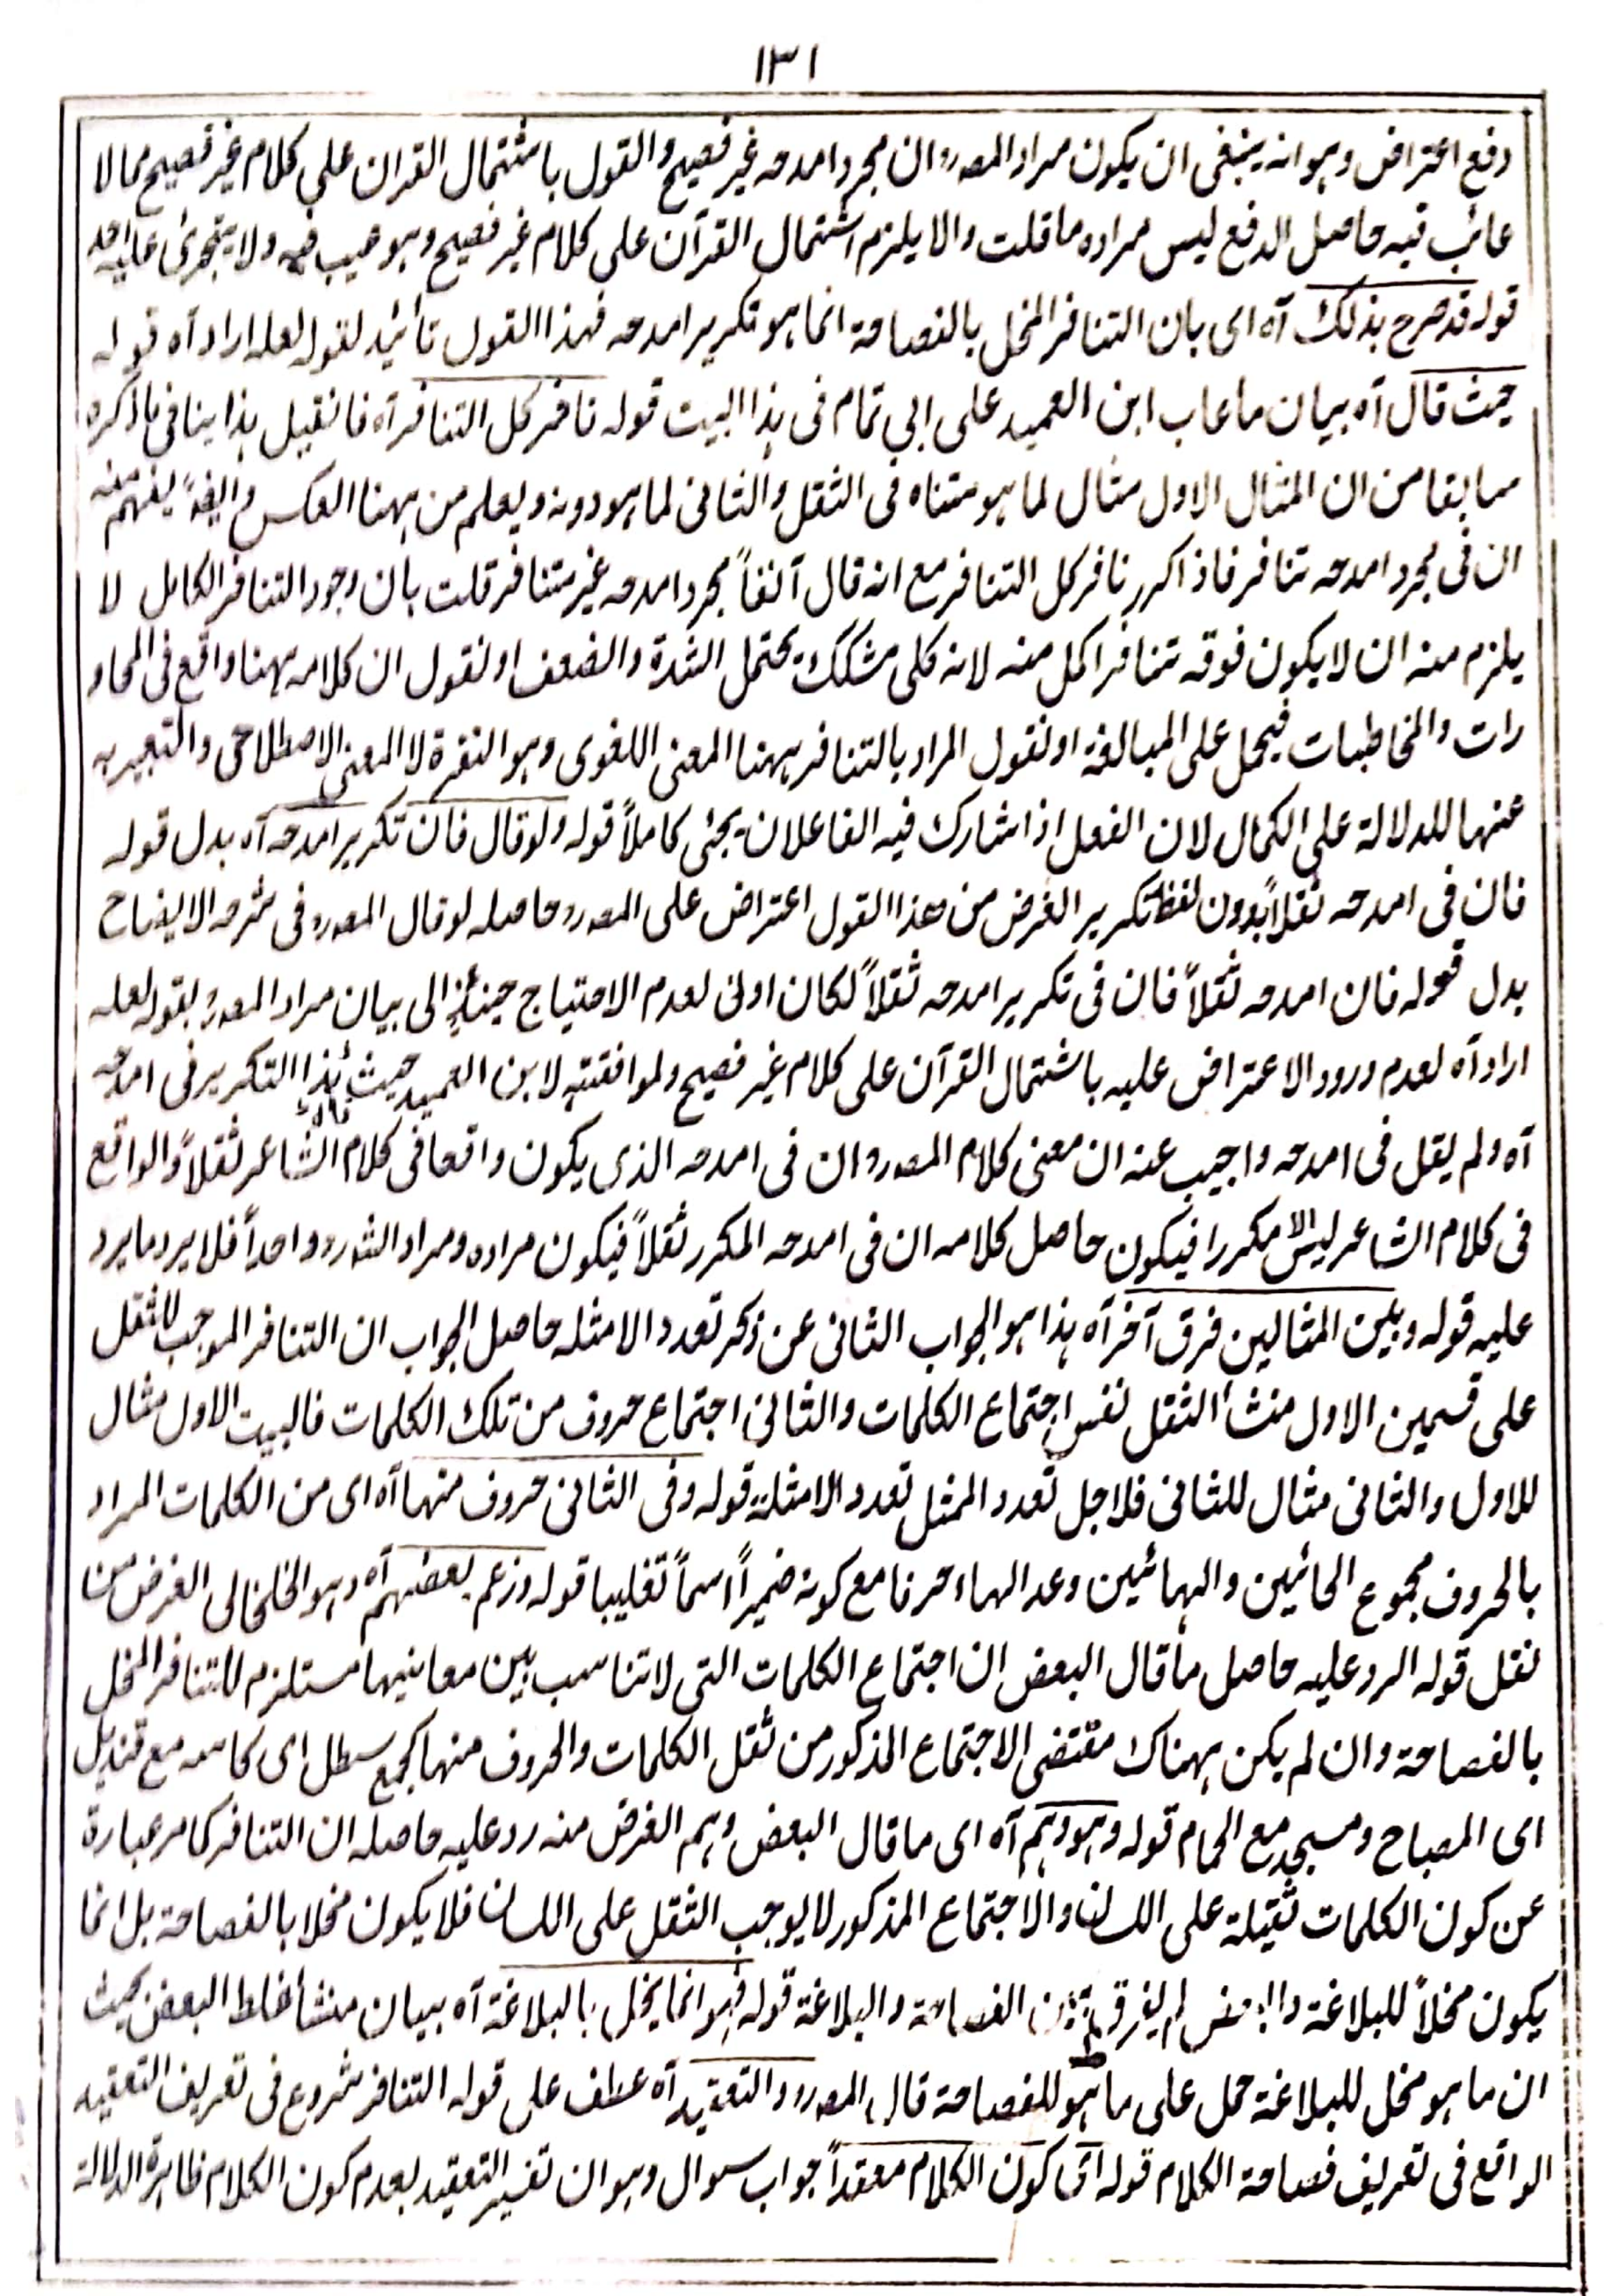 ١٣١
دفع اعتراض وہوانہ ینبغی ان یکون مراد المصر‌ران مجرد امدحہ غیر فصیح والقول باشتمال القران علی کلام غیر فصیح مما لا
عائب فیہ حاصل الدفع لیس مرادہ ما قلت والا یلزم اشتمال القرآن علی کلام غیر فصیح وہو عیب فیہ ولا یتجرئ علیہ احد
قولہ قد صرح بذلک آہ ای بان التنافر المخل بالفصاحة انما ہو تکریر امدحہ فہذا القول تأئید لقولہ لعلہ اراد آہ قولہ
حیث قال آہ بیان ما عاب ابن العمید علی ابی تمام فی ہذا البیت قولہ نافر کل التنافر آہ فانقیل ہذا ینافی ما ذکرہ
سابقا من ان المثال الاول مثال لما ہو متناہ فی الثقل والثانی لما ہو دونہ ویعلم من ہہنا العکس وایضًا یفہم منہ
ان فی مجرد امدحہ تنافر فاذا کرر نافر کل التنافر مع انہ قال آنفاً مجرد امدحہ غیر متنافر قلت بان وجود التنافر الکامل لا
یلزم منہ ان لا یکون فوقہ تنافر اکمل منہ لانہ کلی مشکک یحتمل الشدة والضعف او نقول ان کلامہ ہہنا واقع فی المحاو
رات والمخاطبات فیحمل علی المبالغة او نقول المراد بالتنافر ہہنا المعنی اللغوی وہو النفرة لا المعنی الاصطلاحی والتعبیر بہ
عنہا للدلالة علی الکمال لان الفعل اذا شارک فیہ الفاعلان یجئ کاملاً قولہ ولو قال فان تکریر امدحہ آہ بدل قولہ
فان فی امدحہ ثقلاً بدون لفظ تکریر الغرض من ھذا القول اعتراض علی المصر‌ر حاصلہ لو قال المصر‌ر فی شرحہ الایضاح
بدل قولہ فان امدحہ ثقلاً فان فی تکریر امدحہ ثقلاً لکان اولی لعدم الاحتیاج حینئذٍ الی بیان مراد المصر‌ر بقولہ لعلہ
اراد آہ لعدم ورود الاعتراض علیہ باشتمال القرآن علی کلام غیر فصیح ولموافقتہ لابن العمید حیث قال ہذا التکریر فی امدحہ
آہ ولم یقل فی امدحہ واجیب عنہ ان معنی کلام المصر‌ر ان فی امدحہ الذی یکون واقعا فی کلام الشاعر ثقلاً والواقع
فی کلام الشاعر لیس الا مکررا فیکون حاصل کلامہ ان فی امدحہ المکرر ثقلاً فیکون مرادہ ومراد الشہ‌ر واحداً فلا یرد ما یرد
علیہ قولہ وبین المثالین فرق آخر آہ ہذا ہو الجواب الثانی عن ذکر تعدد الامثلہ حاصل الجواب ان التنافر الموجب للثقل
علی قسمین الاول منشأ الثقل نفس اجتماع الکلمات والثانی اجتماع حروف من تلک الکلمات فالبیت الاول مثال
للاول والثانی مثال للثانی فلاجل تعدد الممثل تعدد الامثلة قولہ وفی الثانی حروف منہا آہ ای من الکلمات المراد
بالحروف مجموع الحائین والہائین وعد الہاء حرفا مع کونہ ضمیراً اسماً تغلیبا قولہ وزعم بعضہم آہ وہو الخلخالی الغرض من
نقل قولہ الرد علیہ حاصل ما قال البعض ان اجتماع الکلمات التی لا تناسب بین معانیہا مستلزم للتنافر المخل
بالفصاحة وان لم یکن ہہناک مقتضی الاجتماع المذکور من ثقل الکلمات والحروف منہا کجمع سطل ای کاسہ مع قندیل
ای المصباح ومسجد مع الحمام قولہ وہو وہم آہ ای ما قال البعض وہم الغرض منہ رد علیہ حاصلہ ان التنافر کما مر عبارة
عن کون الکلمات ثقیلة علی اللسان والاجتماع المذکور لا یوجب الثقل علی اللسان فلا یکون مخلا بالفصاحة بل انما
یکون مخلاً للبلاغة والبعض لم یفرق بین الفصاحة والبلاغة قولہ فہو انما یخل بالبلاغة آہ بیان منشأ غلط البعض بحیث
ان ما ہو مخل للبلاغة حمل علی ما ہو للفصاحة قال المصر‌ر والتعقید آہ عطف علی قولہ التنافر شروع فی تعریف التعقید
الواقع فی تعریف فصاحة الکلام قولہ ای کون الکلام معقداً جواب سوال وہو ان تفسیر التعقید بعدم کون الکلام ظاہرة الدلالة